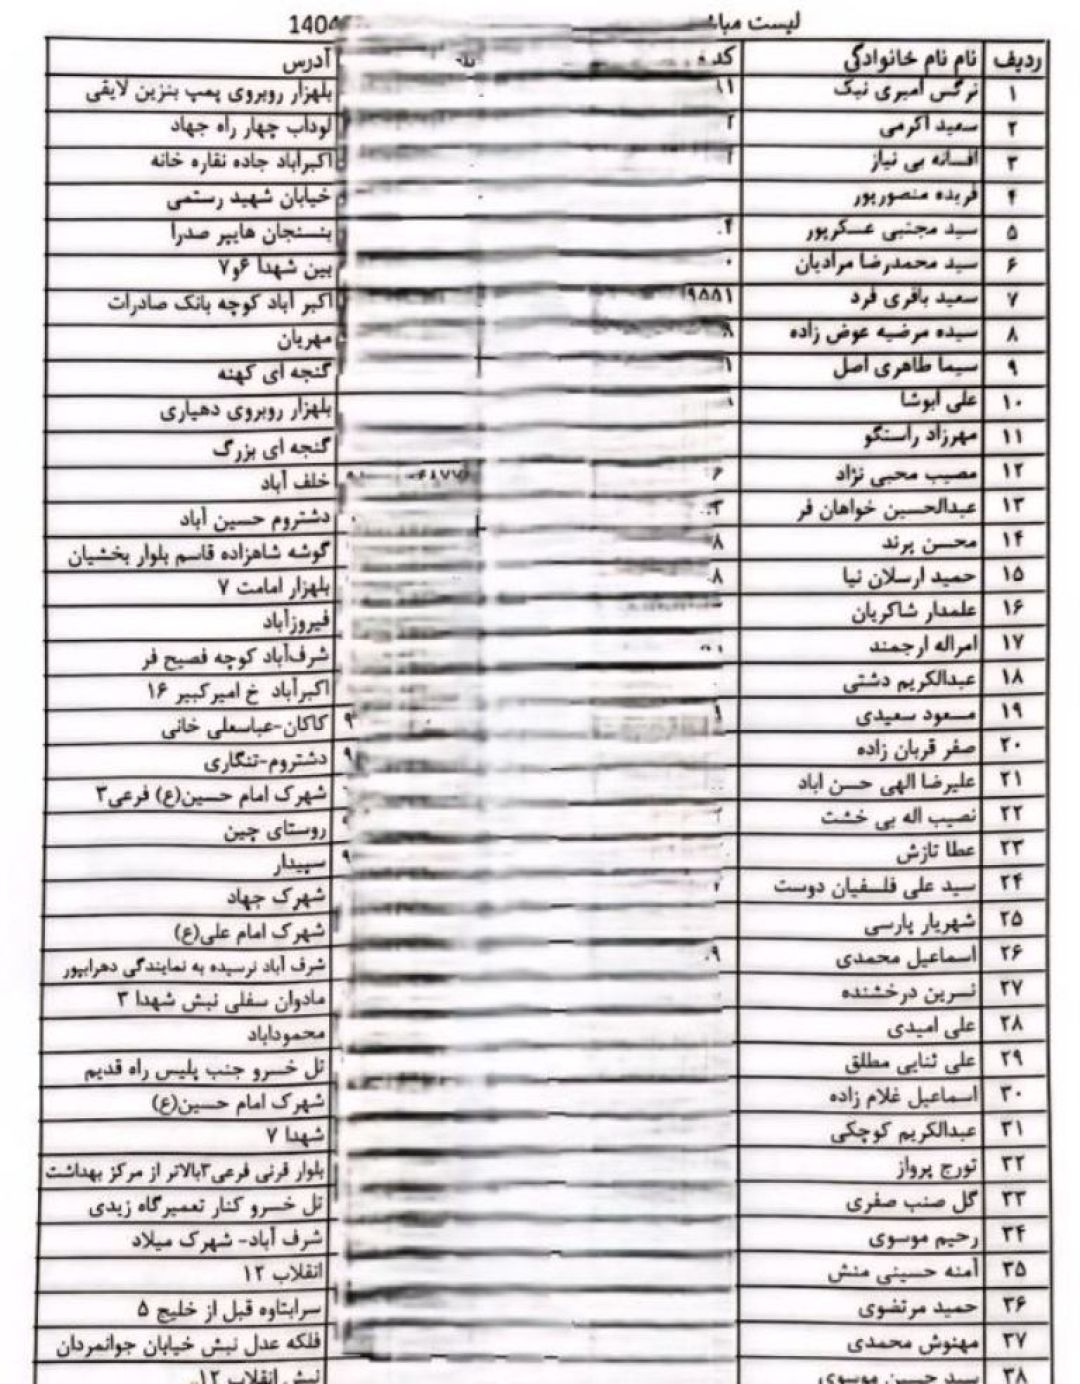 لیست 1404
ردیف نام نام خانوادگی کد آدرس
۱ نرگس امیری نیک بلهزار روبروی پمپ بنزین لایقی
۲ سعید اکرمی لوداب چهار راه جهاد
۳ افسانه بی نیاز اکبرآباد جاده نقاره خانه
۴ فریده منصورپور خیابان شهید رستمی
۵ سید مجتبی عسکرپور بنسنجان هایپر صدرا
۶ سید محمدرضا مرادیان بین شهدا ۶و۷
۷ سعید باقری فرد اکبر آباد کوچه بانک صادرات
۸ سیده مرضیه عوض زاده مهریان
۹ سیما طاهری اصل گنجه ای کهنه
۱۰ علی ابوشا بلهزار روبروی دهیاری
۱۱ مهرزاد راستگو گنجه ای بزرگ
۱۲ مصیب محبی نژاد خلف آباد
۱۳ عبدالحسین خواهان فر دشتروم حسین آباد
۱۴ محسن پرند گوشه شاهزاده قاسم بلوار بخشیان
۱۵ حمید ارسلان نیا بلهزار امامت ۷
۱۶ علمدار شاکریان فیروزآباد
۱۷ امراله ارجمند شرف‌آباد کوچه فصیح فر
۱۸ عبدالکریم دشتی اکبرآباد خ امیرکبیر ۱۶
۱۹ مسعود سعیدی کاکان-عباسعلی خانی
۲۰ صفر قربان زاده دشتروم-تنگاری
۲۱ علیرضا الهی حسن اباد شهرک امام حسین(ع) فرعی۳
۲۲ نصیب اله بی خشت روستای چین
۲۳ عطا تازش سپیدار
۲۴ سید علی فلسفیان دوست شهرک جهاد
۲۵ شهریار پارسی شهرک امام علی(ع)
۲۶ اسماعیل محمدی شرف آباد نرسیده به نمایندگی دهرابپور
۲۷ نسرین درخشنده مادوان سفلی نبش شهدا ۳
۲۸ علی امیدی محموداباد
۲۹ علی ثنایی مطلق تل خسرو جنب پلیس راه قدیم
۳۰ اسماعیل غلام زاده شهرک امام حسین(ع)
۳۱ عبدالکریم کوچکی شهدا ۷
۳۲ تورج پرواز بلوار قرنی فرعی۳بالاتر از مرکز بهداشت
۳۳ گل صنب صفری تل خسرو کنار تعمیرگاه زیدی
۳۴ رحیم موسوی شرف آباد- شهرک میلاد
۳۵ آمنه حسینی منش انقلاب ۱۲
۳۶ حمید مرتضوی سرابتاوه قبل از خلیج ۵
۳۷ مهنوش محمدی فلکه عدل نبش خیابان جوانمردان
۳۸ سید حسین موسوی نبش انقلاب ۱۲.